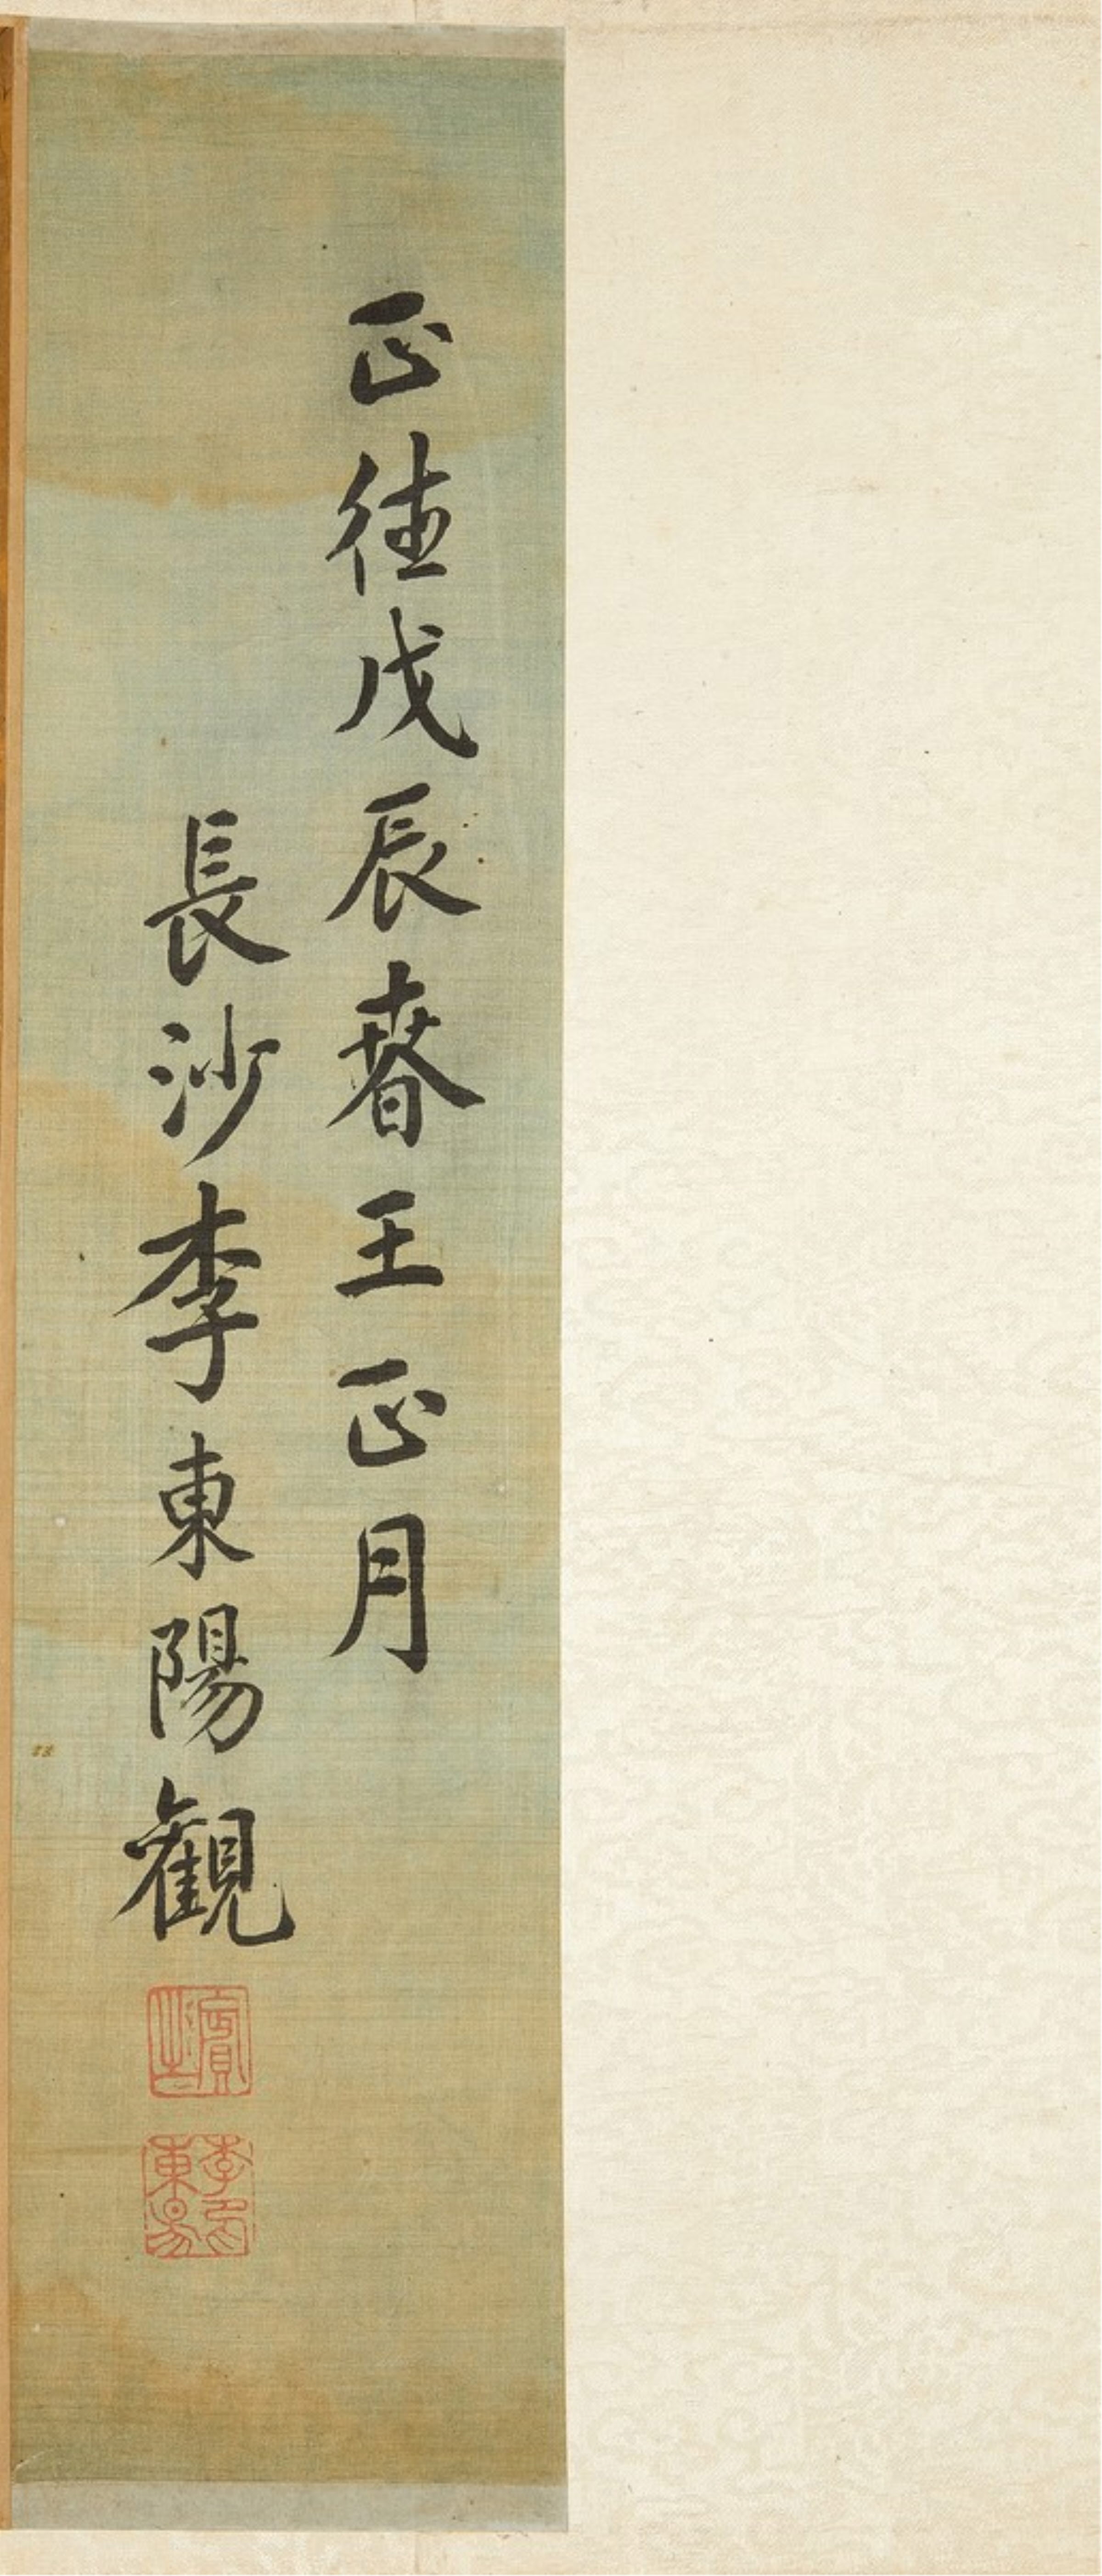 正德戊辰春王正月
長沙李東陽觀
李印東昜